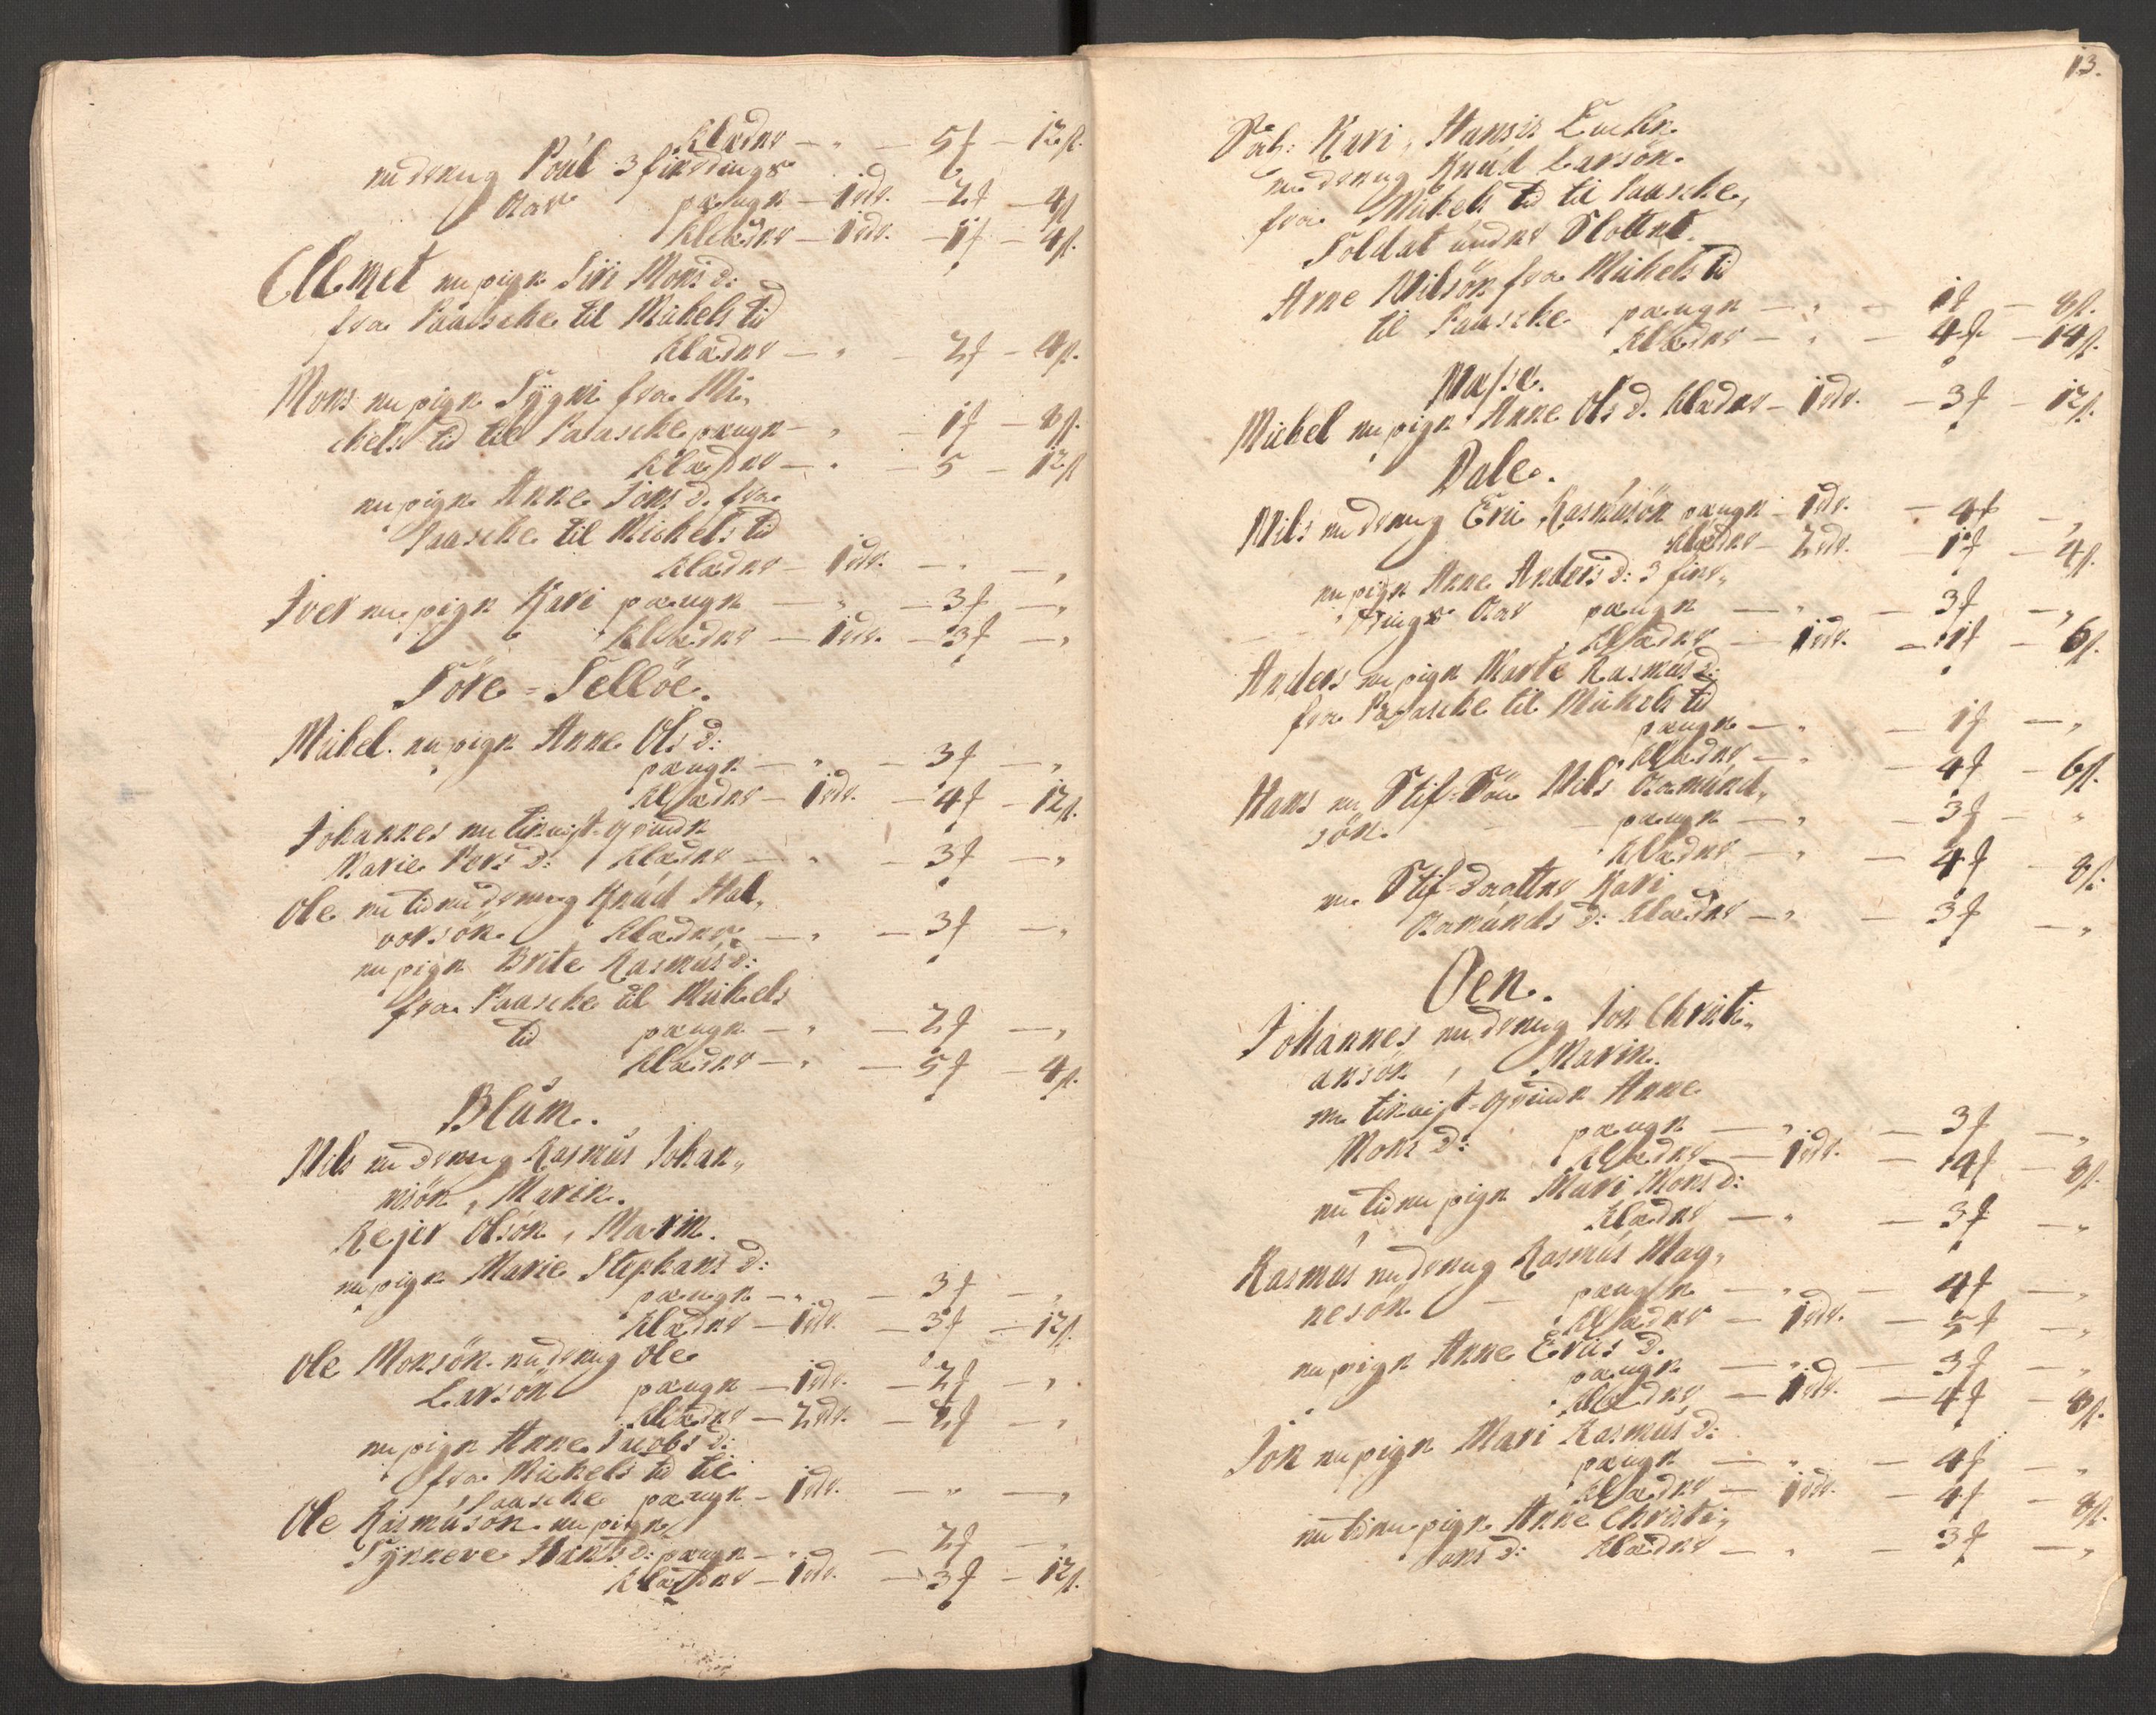 Klæder — „ — 5 f — 12 s.
en dreng Poúl 3 fierdings
Aar penge — 1 rdr. — 2 f — 4 s
Klæder — 1 rdr. — 1 f — 4 s.
Clemet en pige Siri Mons d:
fra Paasche til Michels tid
Klæder — „ — 2 f — 4 s.
Mons en pige Sygni fra Mi„
chels tid til Paasche penge — „ — 1 f — 8 s.
Klæder — „ — 5 — 12 s
en pige Anne Jons d. fra
Paasche til Michels tid
Klæder — 1 rdr. — „ — „
Iver en pige Kari penge — „ — 3 f — „
Klæder — 1 rdr. — 3 f — „
Töre = Selöe.
Michel en pige Anne Ols d:
penge — „ — 3 f — „
Klæder — 1 rdr. — 4 f — 12 s.
Johannes en tieniste qvinde
Marie Pers d: Klæder — „ — 3 f — „
Ole en liden dreng Knúd Hal„
vorsön Klæder — „ — 3 f — „
en pige Brite Rasmús d:
fra Paasche til Michels
tid penge — „ — 2 f — „
Klæder — „ — 5 f — 4 s.
Blúm.
Nils en dreng Rasmús Johan„
nisön, Marin.
Rejer Olsön, Marin.
en pige Marie Stephans d:
penge — „ — 3 f — „
Klæder — 1 rdr. — 3 f — 12 s.
Ole Monsön en dreng Ole
Larsön penge — 1 rdr. — 2 f — „
Klæder — 2 rdr. — 2 f — „
en pige Anne Jacobs d:
fra Michels tid til
Paasche penge — 1 rdr. — „ — „
Ole Rasmúsön en pige
Synneve Hans d: penge — „ — 2 f — „
Klæder — 1 rdr. — 3 f — 12 s.
13.
Sal: Kari, Hansis Encke
en dreng Knud Larsön
fra Michels tid til Paasche,
Soldat únder Slottet.
Arne Nilsön fra Michels tid
til Paasche penge — „ — 1 f — 8 s.
Klæder — „ — 4 f — 14 s.
Michel en pige Anne Ols d. Klæder — 1 rdr. — 3 f — 12 s.
Dale.
Nils en dreng Eric Rasmúsön penge — 1 rdr. — 4 f — „
Klæder — 2 rdr. — 1 f — 4 s.
en pige Anne Anders d: 3 fier„
dings Aar penge — „ — 3 f — „
Klæder — 1 rdr. — 1 f — 6 s.
Anders en pige Marte Rasmús d:
fra Paasche til Michels tid
penge — „ — 1 f — „
Klæder — „ — 4 f — 6 s.
Hans en Stif=Sön Nils Aamúnd„
sön penge — „ — 3 f — „
Klæder — „ — 4 f — 8 s.
en Stif=daatter Kari
Aamúnds d: Klæder — „ — 3 f — „
Oen.
Johannes en dreng Jon Christi„
ansön, Marin.
en tieniste qvinde Anne
Mons d: penge — „ — 3 f — „
Klæder — 1 rdr. — 4 f — 8 s.
en liden pige Mari Mons d:
Klæder — „ — 3 f — „
Rasmús en dreng Rasmús Mag„
nesön penge — „ — 4 f — „
Klæder — 1 rdr. — 5 f — „
en pige Anne Erics d.
penge — „ — 3 f — „
Klæder — 1 rdr. — 4 f — 8 s.
Jon en pige Mari Rasmús d:
penge — „ — 4 f — „
Klæder — 1 rdr. — 4 f — 8 s.
en liden pige Anne Christi„
ans d: Klæder — „ — 3 f — „